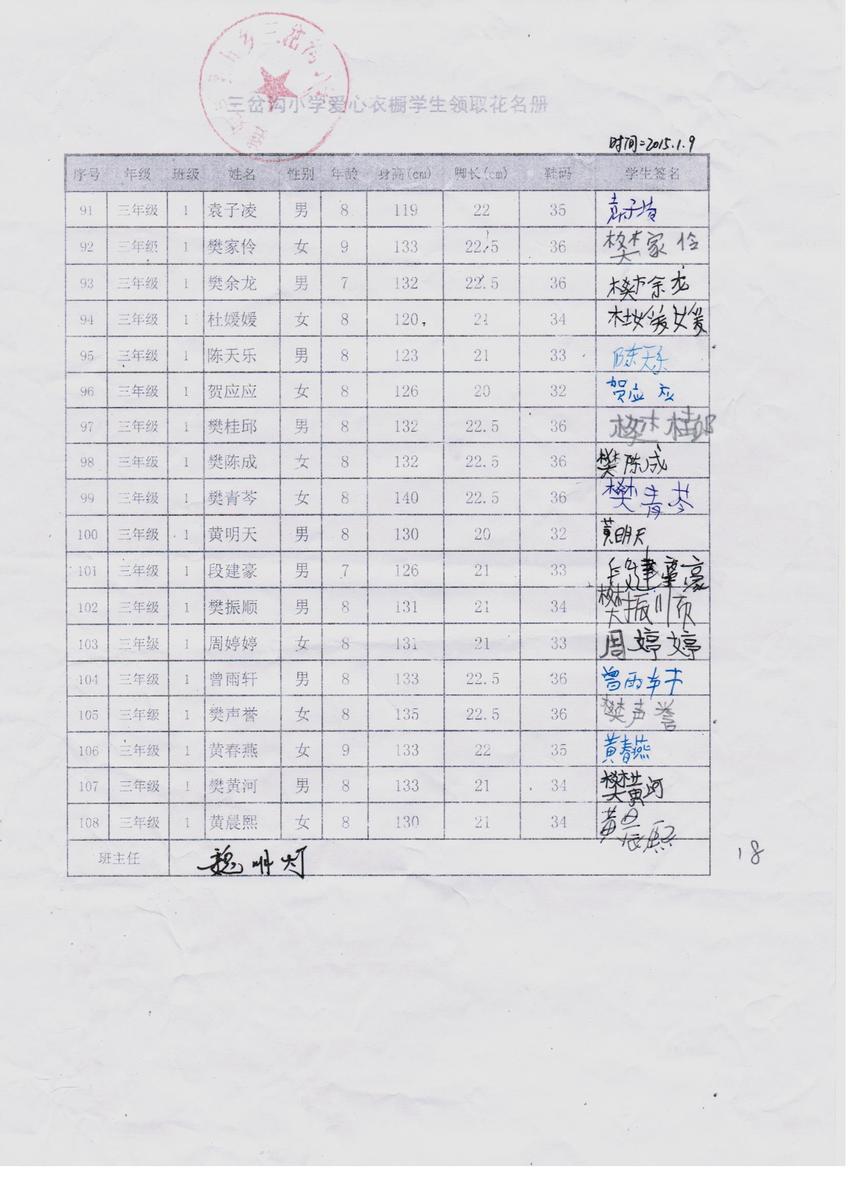 三岔沟小学爱心衣橱学生领取花名册
时间=2015.1.9
序号 年级 班级 姓名 性别 年龄 身高(cm) 脚长(cm) 鞋码 学生签名
91 三年级 1 袁子凌 男 8 119 22 35 袁子凌
92 三年级 1 樊家伶 女 9 133 22.5 36 樊家伶
93 三年级 1 樊余龙 男 7 132 22.5 36 樊余龙
94 三年级 1 杜媛媛 女 8 120 21 34 杜媛媛
95 三年级 1 陈天乐 男 8 123 21 33 陈天乐
96 三年级 1 贺应应 女 8 126 20 32 贺应应
97 三年级 1 樊桂邱 男 8 132 22.5 36 樊桂邱
98 三年级 1 樊陈成 女 8 132 22.5 36 樊陈成
99 三年级 1 樊青芩 女 8 140 22.5 36 樊青芩
100 三年级 1 黄明天 男 8 130 20 32 黄明天
101 三年级 1 段建豪 男 7 126 21 33 段建豪
102 三年级 1 樊振顺 男 8 131 21 34 樊振顺
103 三年级 1 周婷婷 女 8 131 21 33 周婷婷
104 三年级 1 曾雨轩 男 8 133 22.5 36 曾雨轩
105 三年级 1 樊声誉 女 8 135 22.5 36 樊声誉
106 三年级 1 黄春燕 女 9 133 22 35 黄春燕
107 三年级 1 樊黄河 男 8 133 21 34 樊黄河
108 三年级 1 黄晨熙 女 8 130 21 34 黄晨熙
班主任 魏明灯
18